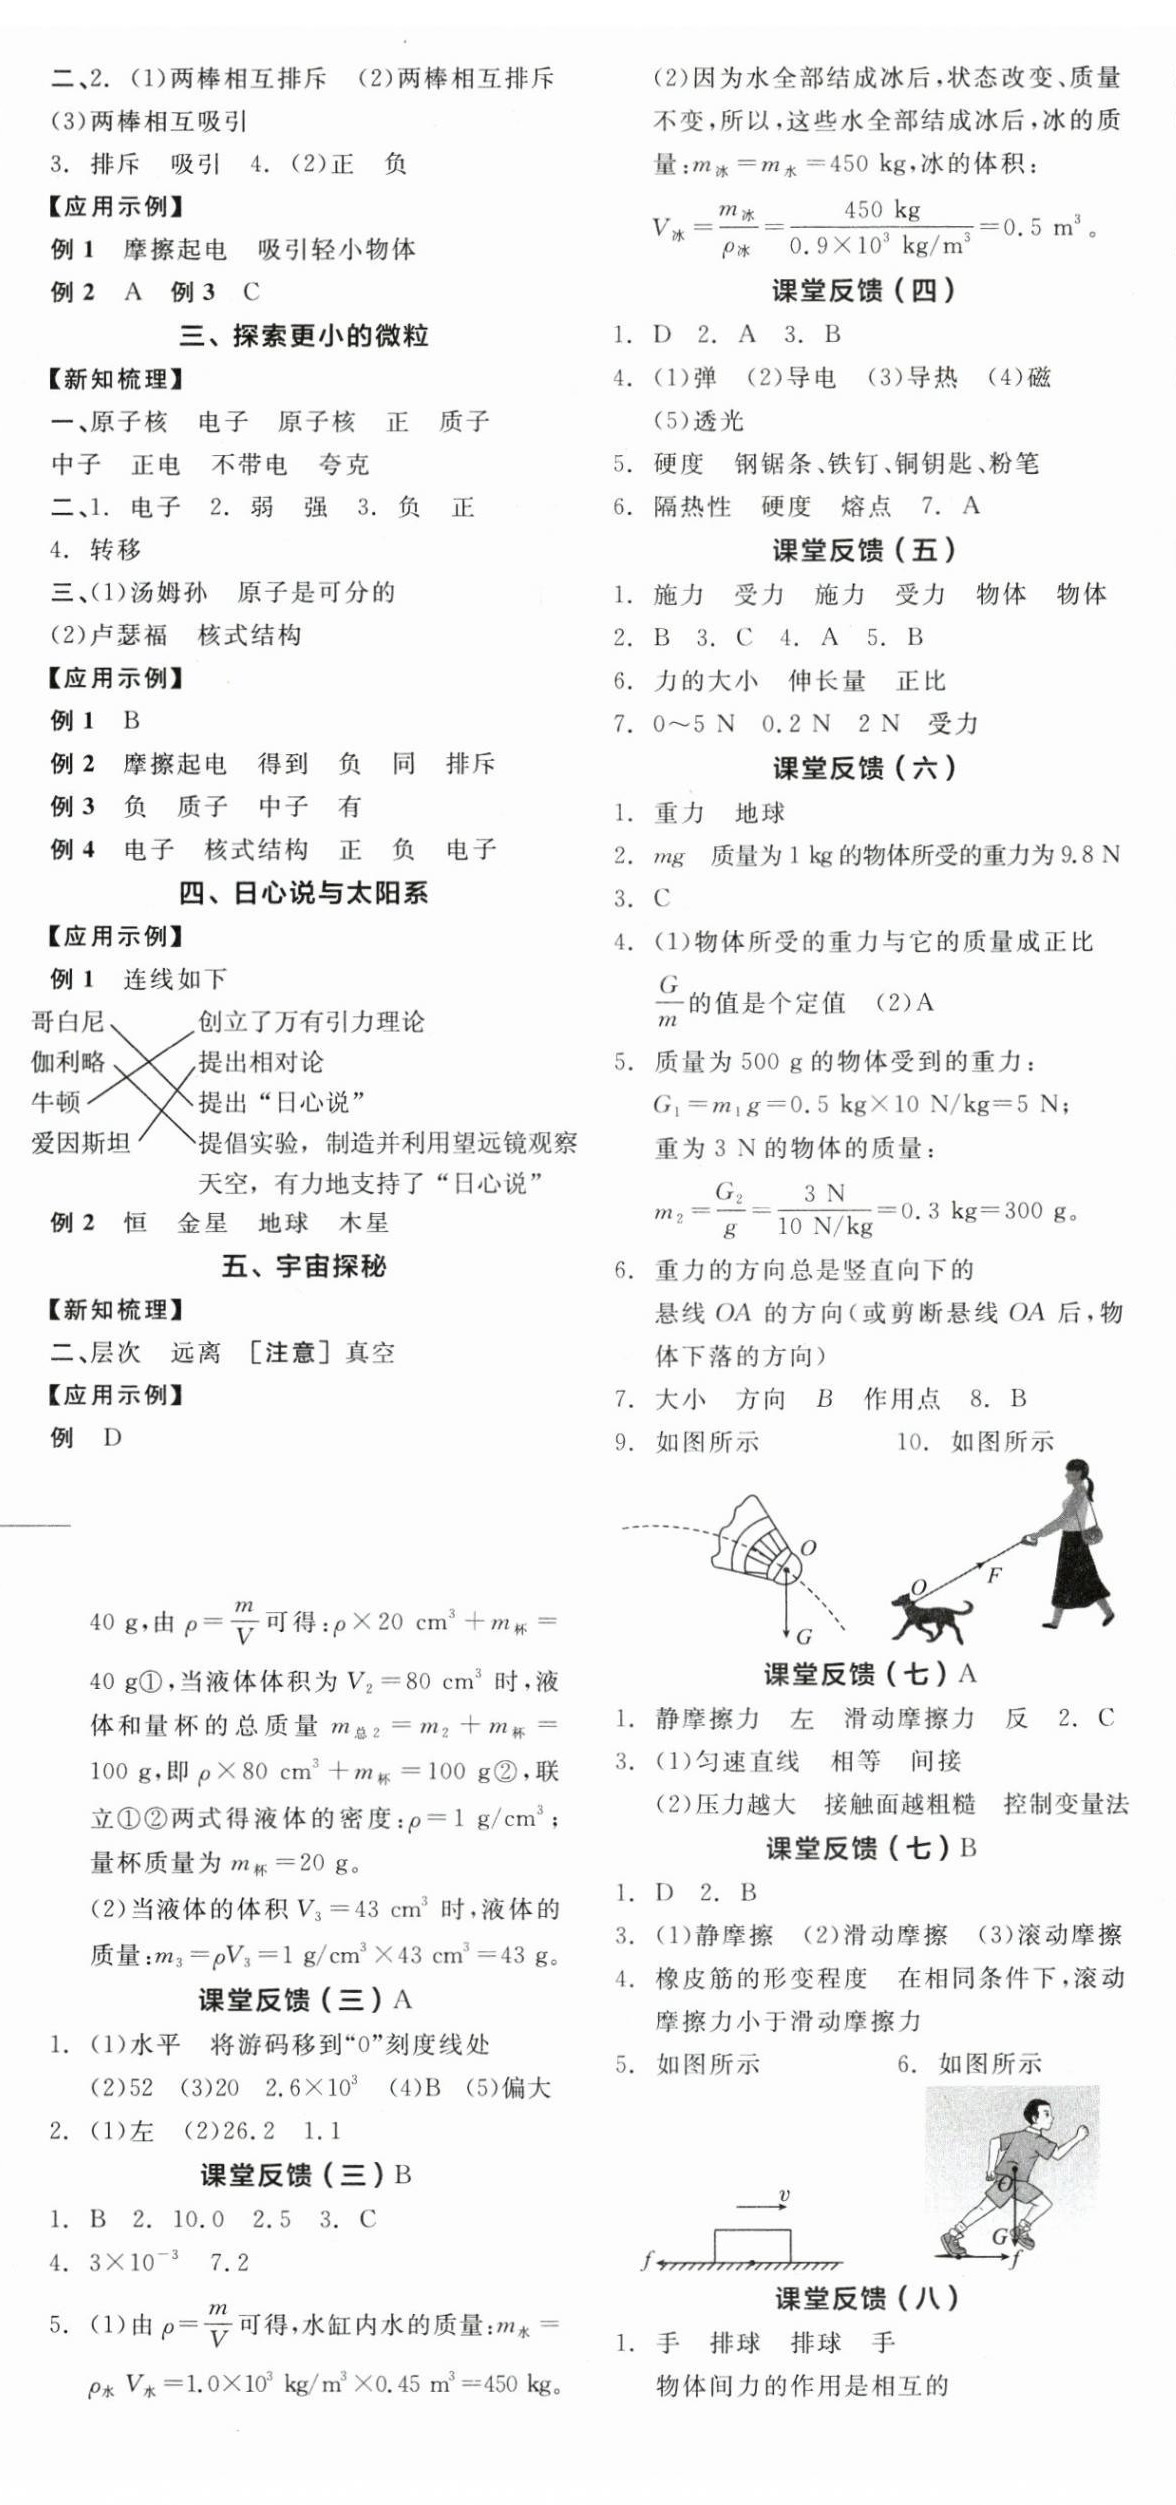 二、2. (1)两棒相互排斥 (2)两棒相互排斥
(3)两棒相互吸引
3. 排斥 吸引 4. (2)正 负
【应用示例】
例 1 摩擦起电 吸引轻小物体
例 2 A 例 3 C
三、探索更小的微粒
【新知梳理】
一、原子核 电子 原子核 正 质子
中子 正电 不带电 夸克
二、1. 电子 2. 弱 强 3. 负 正
4. 转移
三、(1)汤姆孙 原子是可分的
(2)卢瑟福 核式结构
【应用示例】
例 1 B
例 2 摩擦起电 得到 负 同 排斥
例 3 负 质子 中子 有
例 4 电子 核式结构 正 负 电子
四、日心说与太阳系
【应用示例】
例 1 连线如下
哥白尼 创立了万有引力理论
伽利略 提出相对论
牛顿 提出“日心说”
爱因斯坦 提倡实验，制造并利用望远镜观察
天空，有力地支持了“日心说”
例 2 恒 金星 地球 木星
五、宇宙探秘
【新知梳理】
二、层次 远离 [注意]真空
【应用示例】
例 D
40 g,由 ρ=m/V 可得:ρ×20 cm³+m杯=
40 g①,当液体体积为 V₂=80 cm³ 时,液
体和量杯的总质量 m总2=m₂+m杯=
100 g,即 ρ×80 cm³+m杯=100 g②,联
立①②两式得液体的密度:ρ=1 g/cm³;
量杯质量为 m杯=20 g。
(2)当液体的体积 V₃=43 cm³ 时,液体的
质量:m₃=ρV₃=1 g/cm³×43 cm³=43 g。
课堂反馈(三)A
1. (1)水平 将游码移到“0”刻度线处
(2)52 (3)20 2.6×10³ (4)B (5)偏大
2. (1)左 (2)26.2 1.1
课堂反馈(三)B
1. B 2. 10.0 2.5 3. C
4. 3×10⁻³ 7.2
5. (1)由 ρ=m/V 可得,水缸内水的质量:m水=
ρ水V水=1.0×10³ kg/m³×0.45 m³=450 kg。
(2)因为水全部结成冰后,状态改变、质量
不变,所以,这些水全部结成冰后,冰的质
量:m冰=m水=450 kg,冰的体积:
V冰=m冰/ρ冰=450 kg/(0.9×10³ kg/m³)=0.5 m³。
课堂反馈(四)
1. D 2. A 3. B
4. (1)弹 (2)导电 (3)导热 (4)磁
(5)透光
5. 硬度 钢锯条、铁钉、铜钥匙、粉笔
6. 隔热性 硬度 熔点 7. A
课堂反馈(五)
1. 施力 受力 施力 受力 物体 物体
2. B 3. C 4. A 5. B
6. 力的大小 伸长量 正比
7. 0~5 N 0.2 N 2 N 受力
课堂反馈(六)
1. 重力 地球
2. mg 质量为1 kg的物体所受的重力为9.8 N
3. C
4. (1)物体所受的重力与它的质量成正比
G/m 的值是个定值 (2)A
5. 质量为 500 g 的物体受到的重力:
G₁=m₁g=0.5 kg×10 N/kg=5 N;
重为 3 N 的物体的质量:
m₂=G₂/g=3 N/(10 N/kg)=0.3 kg=300 g。
6. 重力的方向总是竖直向下的
悬线 OA 的方向(或剪断悬线 OA 后,物
体下落的方向)
7. 大小 方向 B 作用点 8. B
9. 如图所示 10. 如图所示
O
G
O F
课堂反馈(七)A
1. 静摩擦力 左 滑动摩擦力 反 2. C
3. (1)匀速直线 相等 间接
(2)压力越大 接触面越粗糙 控制变量法
课堂反馈(七)B
1. D 2. B
3. (1)静摩擦 (2)滑动摩擦 (3)滚动摩擦
4. 橡皮筋的形变程度 在相同条件下,滚动
摩擦力小于滑动摩擦力
5. 如图所示 6. 如图所示
v
f
O
G
f
课堂反馈(八)
1. 手 排球 排球 手
物体间力的作用是相互的